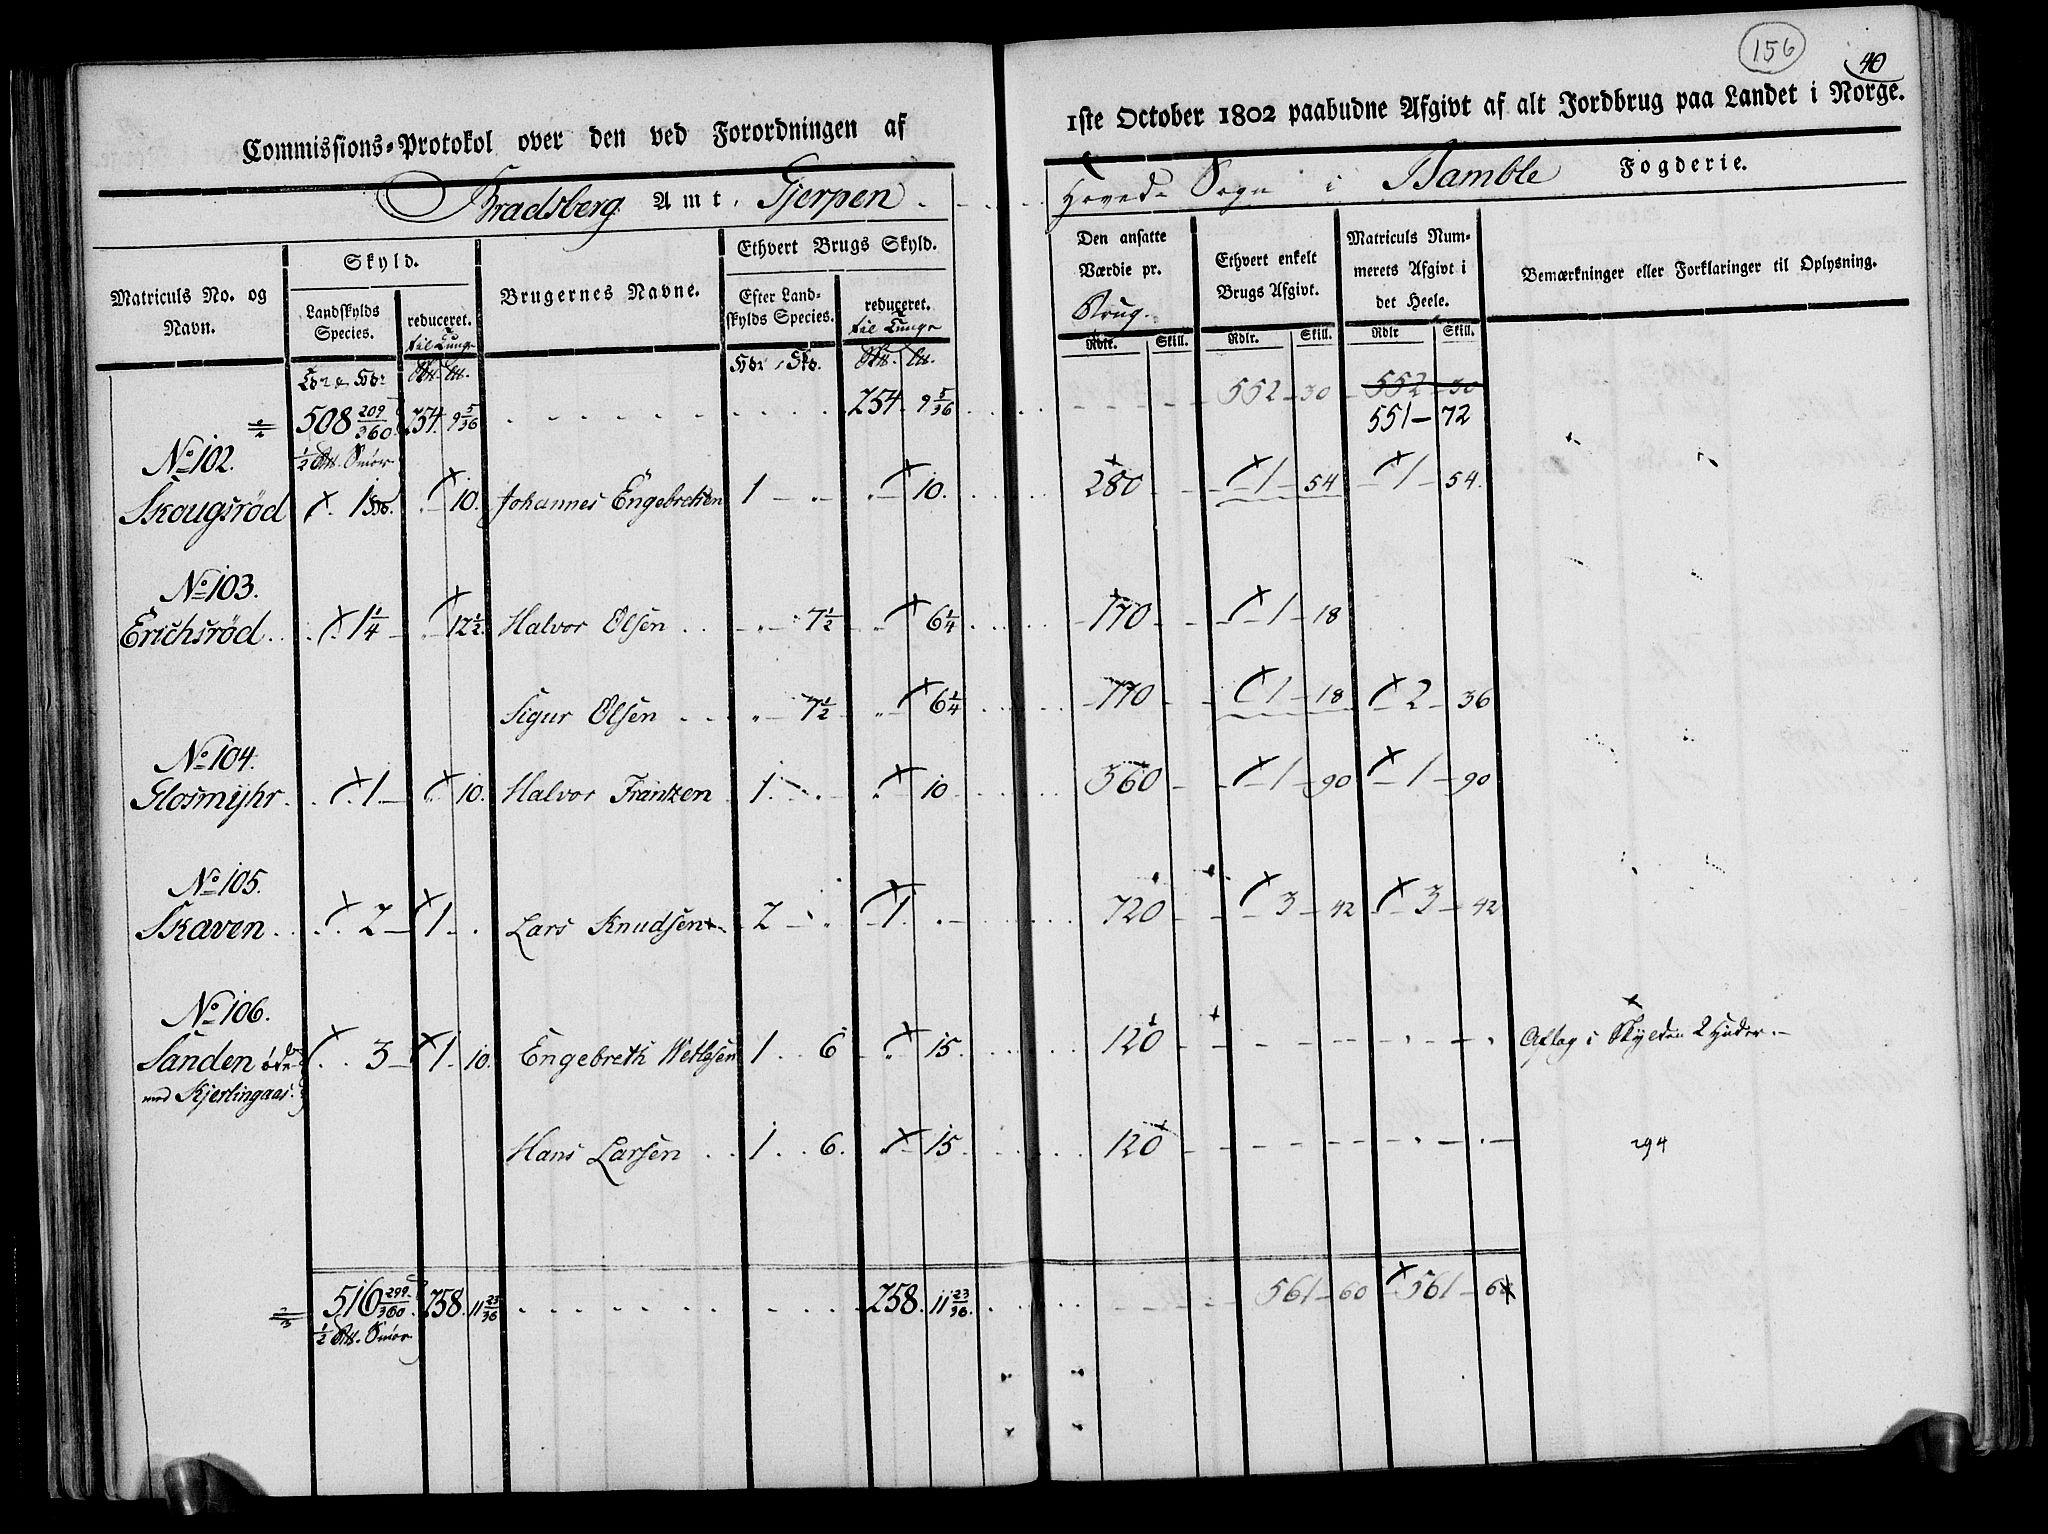 156
40
Commissions-Protokol over den ved Forordningen af 1ste October 1802 paabudne Afgivt af alt Jordbrug paa Landet i Norge.
Bradsberg Amt, Gjerpen Hoved Sogn i Bamble Fogderie.
Matriculs No. og Navn.
Skyld.
Landskylds Species.
reduceret. til Tunge
Brugernes Navne.
Ethvert Brugs Skyld.
Efter Landskylds Species.
reduceret. til Tunge
Den ansatte Værdie pr. Brug.
Rdlr. Skill.
Ethvert enkelt Brugs Afgivt.
Rdlr. Skill.
Matriculs Nummerets Afgivt i det Heele.
Rdlr Skill.
Bemærkninger eller Forklaringer til Oplysning.
508 209/360 254 9 5/36 254 9 5/36 552 30 552 30
551 72
½ Smør
No 102.
Skougsrød 1 10. Johannes Engebretsen 1 10. 280 1 54 1 54.
No 103.
Erichsrød 1¼ 12½ Halvor Olsen 7½ 6¼ 170 1 18
Sigur Olsen 7½ 6¼ 170 1 18 2 36
No 104.
Glosmyhr 1 10. Halvor Frantzen 1 10 360 1 90 1 90
No 105.
Skaven 2 1 Lars Knudsen 2 1 720 3 42 3 42
No 106.
Sanden øde 3 1 10. Engebreth Wetlesen 1 6 15. 120 Aftag i Skylden 2 Huder.
med Kjerlingaas.
Hans Larsen 1 6. 15 120 294
516 299/360 258. 11 23/36 258. 11 23/36 561 60 561
½ Smør